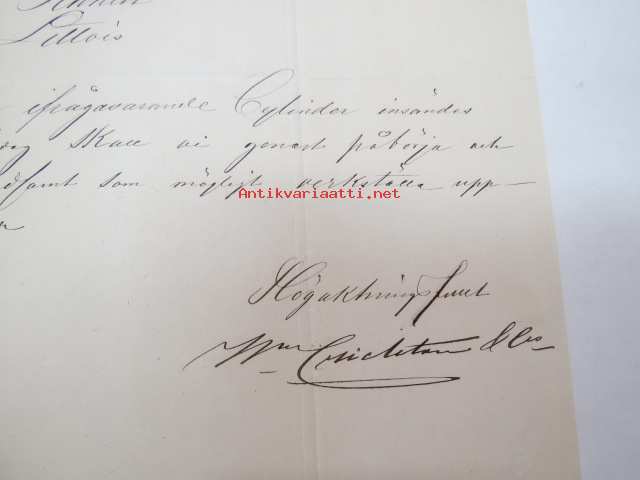 Littois
ifrågavarande Cylinder insändes
skall vi genast påbörja och
samt som möjligt verkställa upp-
Antikvariaatti.net
Högaktningsfullt
Wm Crichton & Co